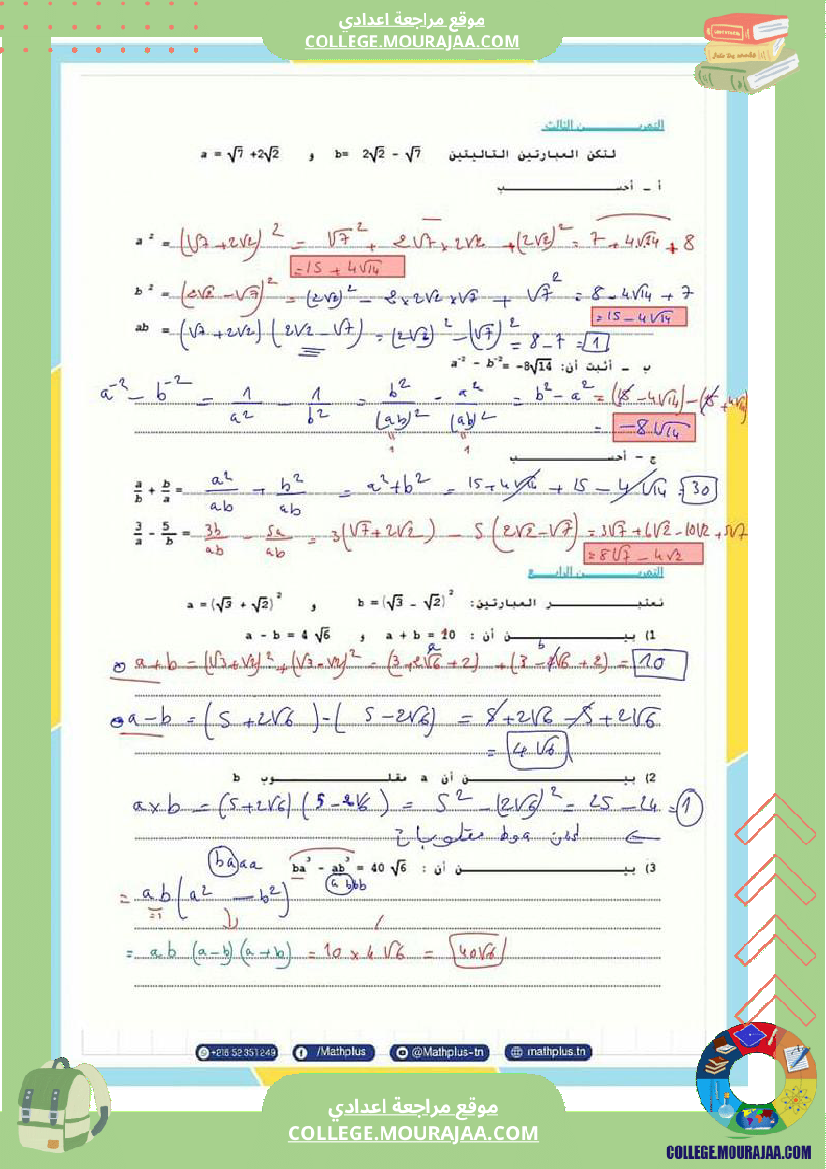 موقع مراجعة اعدادي
COLLEGE.MOURAJAA.COM
التمريـــــــن الثالث
لتكن العبارتين التاليتين a = √7 +2√2 و b= 2√2 − √7
أ – أحســـــــب
a² = (√7 + 2√2)² = √7² + 2√7 × 2√2 + (2√2)² = 7 + 4√14 + 8
= 15 + 4√14
b² = (2√2 − √7)² = (2√2)² − 2×2√2×√7 + √7² = 8 − 4√14 + 7
= 15 − 4√14
ab = (√7 + 2√2)(2√2 − √7) = (2√2)² − (√7)² = 8 − 7 = 1
ب – أثبت أن: a⁻² − b⁻² = −8√14
a⁻² − b⁻² = 1/a² − 1/b² = b²/(ab)² − a²/(ab)² = b² − a² = (15 − 4√14) − (15 + 4√14)
= −8√14
1 1
ج – أحســـــــب
a/b + b/a = a²/ab + b²/ab = a² + b² = 15 + 4√14 + 15 − 4√14 = 30
3/a − 5/b = 3b/ab − 5a/ab = 3(√7 + 2√2) − 5(2√2 − √7) = 3√7 + 6√2 − 10√2 + 5√7
= 8√7 − 4√2
التمريـــــــن الرابـــع
نعتبـــــــر العبارتين: b = (√3 − √2)² و a = (√3 + √2)²
1) بيـــــــن أن : a + b = 10 و a − b = 4√6
a + b = (√3 + √2)² + (√3 − √2)² = (3 + 2√6 + 2) + (3 − 2√6 + 2) = 10
a − b = (5 + 2√6) − (5 − 2√6) = 5 + 2√6 − 5 + 2√6
= 4√6
2) بيـــــــن أن a مقلـــــــوب b
a × b = (5 + 2√6)(5 − 2√6) = 5² − (2√6)² = 25 − 24 = 1
3) بيـــــــن أن : ba³ − ab³ = 40√6
baaa
abbb
= ab(a² − b²)
=1
= ab (a − b)(a + b) = 10 × 4√6 = 40√6
+216 52 351 249
/Mathplus
@Mathplus-tn
mathplus.tn
موقع مراجعة اعدادي
COLLEGE.MOURAJAA.COM
COLLEGE.MOURAJAA.COM